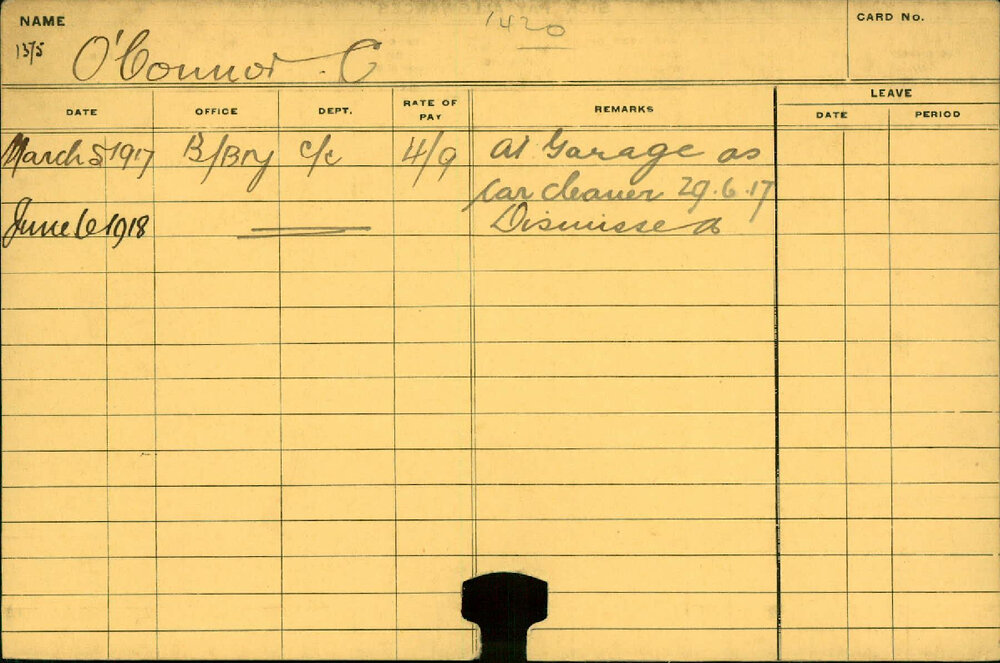 NAME
1420
CARD No.
1375
O'Connor C
DATE OFFICE DEPT. RATE OF PAY REMARKS LEAVE
DATE PERIOD
March 5 1917 B/Bry c/c 4/9 at Garage as
Car cleaner 29.6.17
June 6 1918 Dismissed